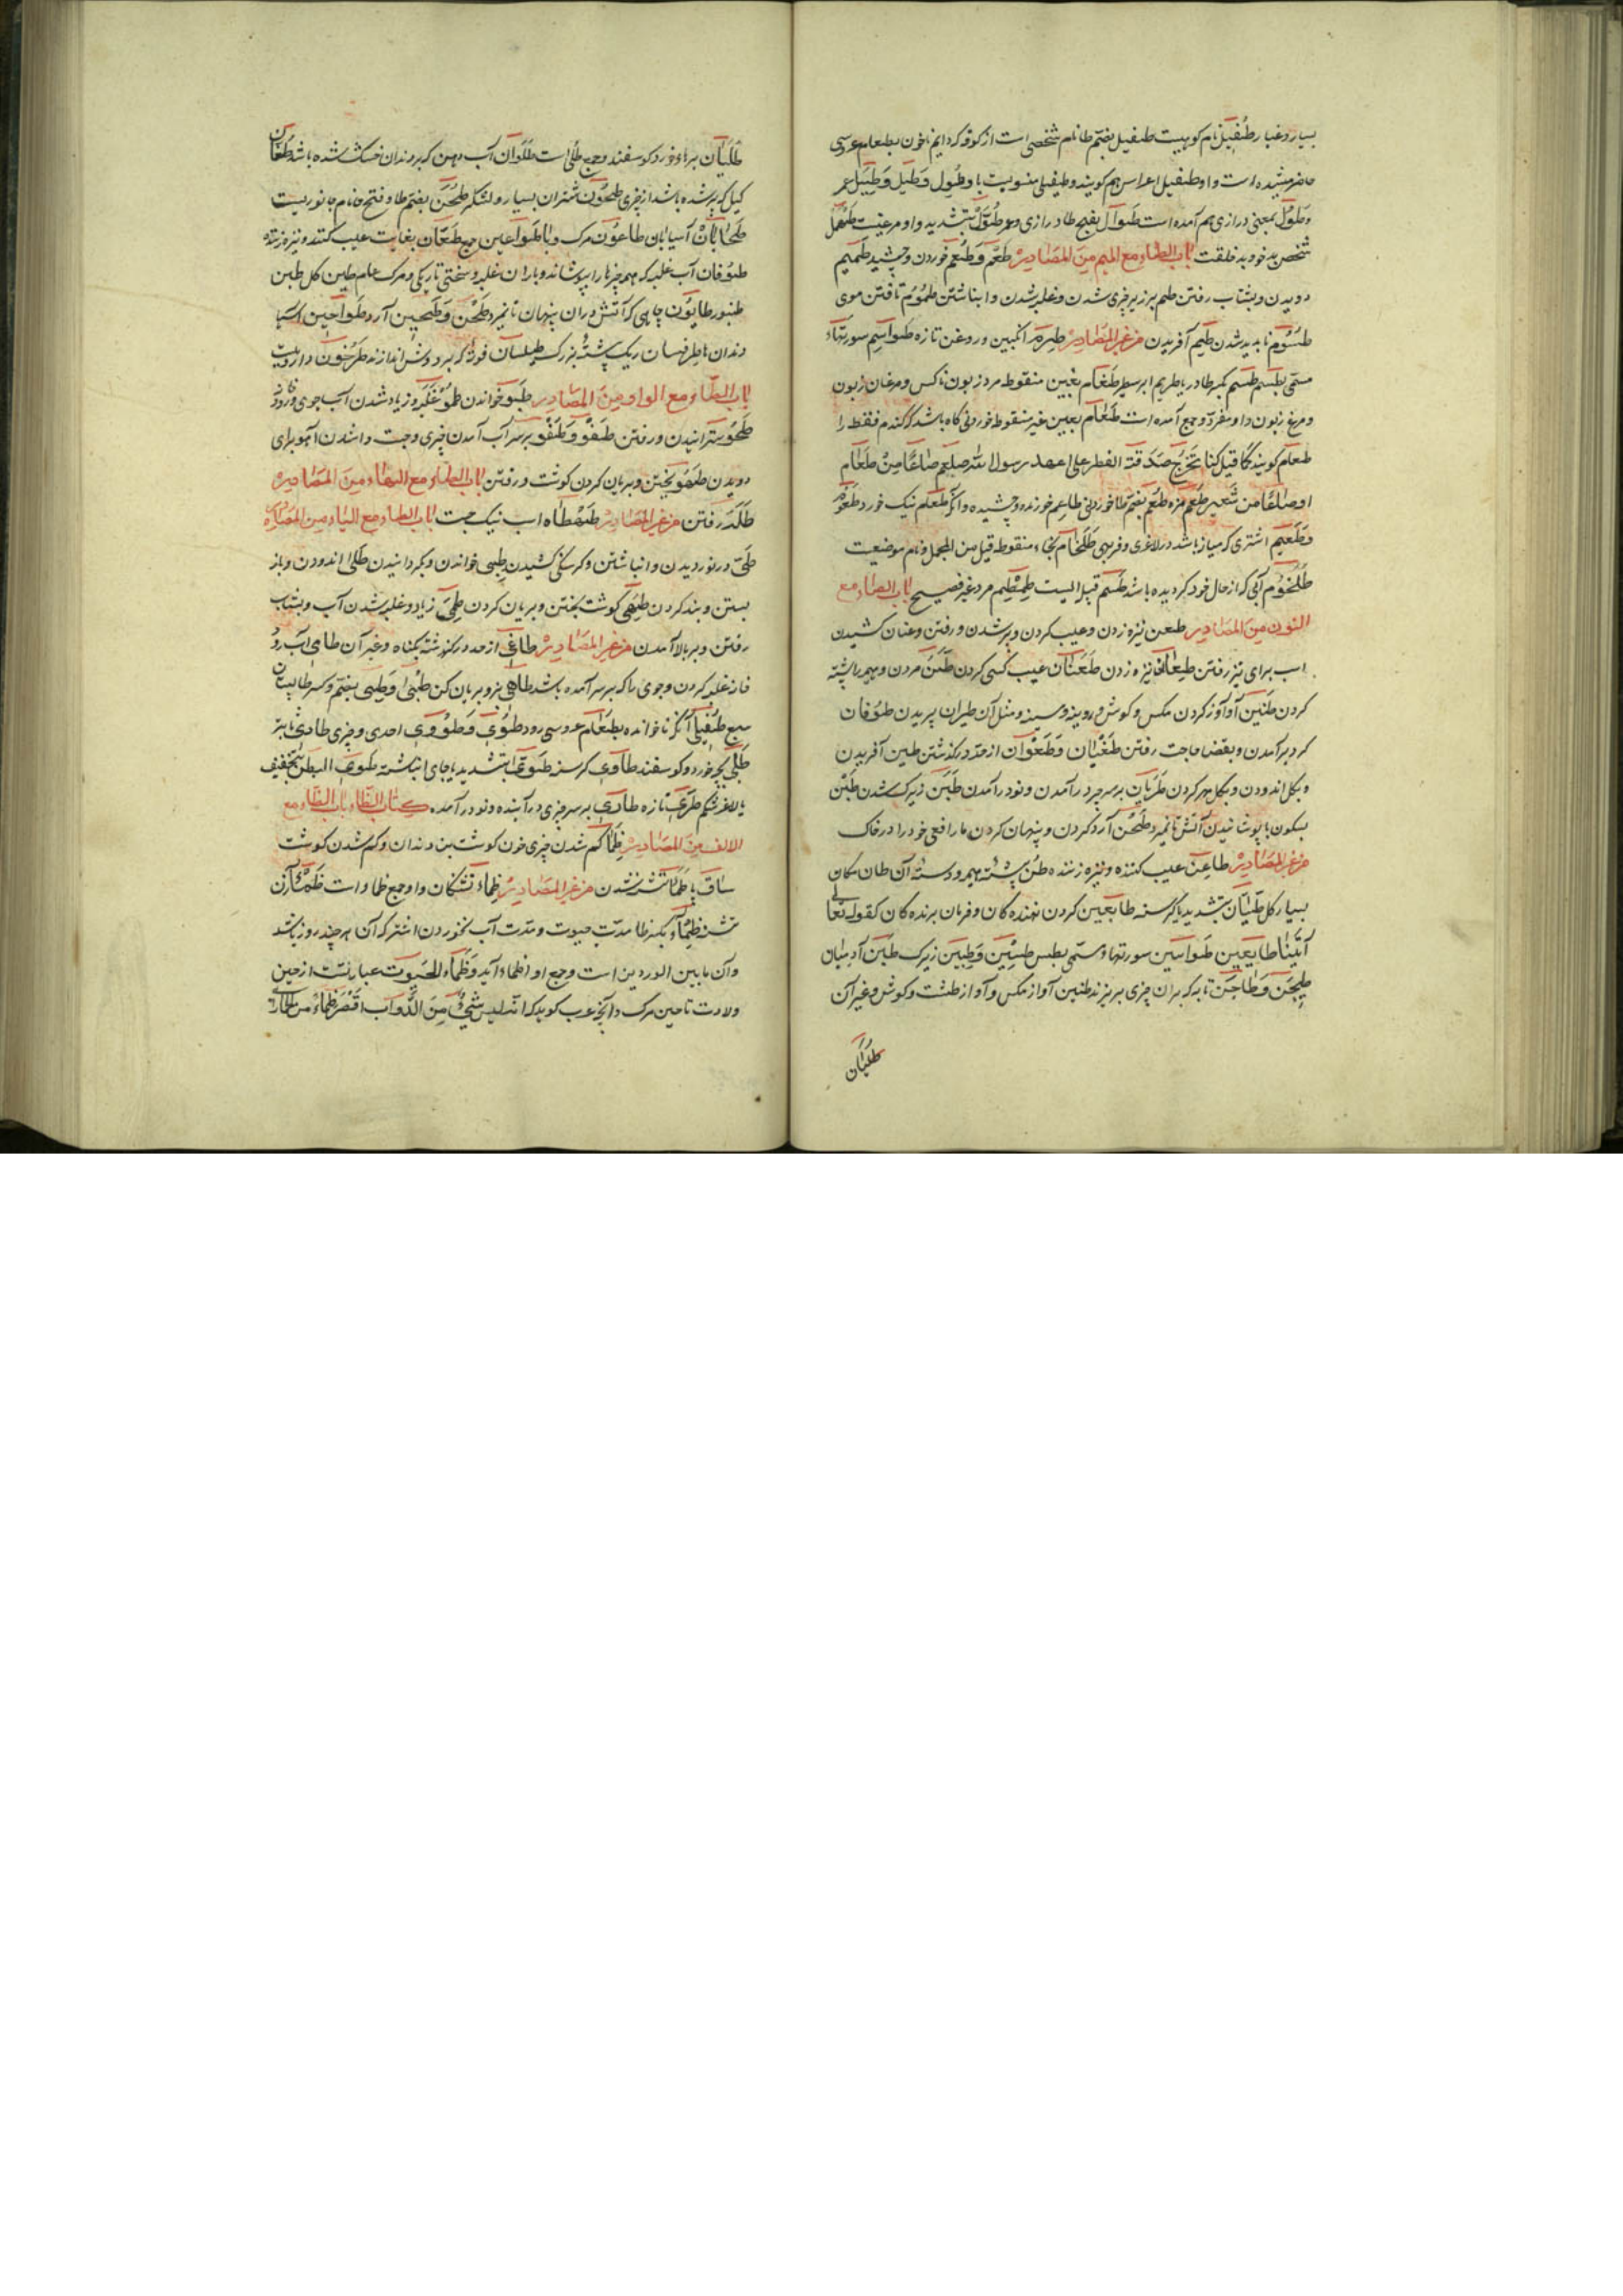 بسیار و غبار طُفَیل نام کوهیست طفیل بضم طا نام شخصی است از کوفه که دایم ناخوانده بطعام عروسی
حاضر میشده است و او طفیل اعراس هم کویند و طفیلی منسوبست باو طُول وَطیل وَطِیَل عمر
وَطَوْل بمعنی درازی هم آمده است طَوال بفتح طا درازی دهر طُوَّل بتشدید واو مرغیست
شخص بدخو بدخلقت باب الطاء مع المیم مِنَ المَصَادِر طَعْم وَطُعْم خوردن و چشیدن طَمیم
دویدن و بشتاب رفتن طم بر زبر چیزی شدن و غلبه شدن و انباشتن طُمُوم تافتن موی
طُسُوم ناپدید شدن طَیم آفریدن من غیر المَصَادِر طِرم انکبین و روغن تازه طَواسِیم سورتهاء
مسمّی بطسم طسم بکسر طا دریا طریم ابر سطبر طَغام بغین منقوطه مرد زبون ناکس و مرغان زبون
و مرغ زبون و او مفرد و جمع آمده است طَعام بعین غیر منقوطه خوردنی کاه باشد که کندم فقط را
طعام کویند کما قیل کنا نخرج صَدَقة الفطر علی عهد رسول الله صلعم صاعًا مِنْ طَعام
او صاعًا من شَعیر طَعْم مزه طُعم بضم طا خوردنی طاعِم خورنده و چشیده و آنکه طعام نیک خورد طَعُوْم
وَطَعِیم اشتری که میانه باشد در لاغری و فربهی طَلَخام بخاء منقوطه قیل من المجمل و نام موضعیست
طُلخُوم آبی که از حال خود کردیده باشد طَسْم قبیله ایست طِمْطِم مرد غیر فصیح باب الطاء مع
النون مِنَ المَصَادِر طعن نیزه زدن و عیب کردن و پیر شدن و رفتن و عنان کشیدن
اسب برای تیز رفتن طِعان نیزه زدن طَعَنان عیب کسی کردن طَنّ مردن و هیمه را پشته
کردن طَنین آواز کردن مکس و کوش و رویینه و سینه و مثل آن طیران پریدن طَوَفان
کرد برآمدن و بقضا حاجت رفتن طُغْیان وَطُغْوان از حد درکذشتن طین آفریدن
و بکل اندودن و بکل مهر کردن طَرَیان بر سر چیز درآمدن و نو درآمدن طَبَن زیرک شدن طَبْن
بسکون با پوشانیدن آتش تا نمیرد طَحْن آرد کردن و پنهان کردن مار افعی خود را در خاک
من غیر المَصَادِر طاعِن عیب کننده و نیزه زننده طُنّ پشته هیمه و دسته آن طان مکان
بسیار کل طَیّان بتشدید یا کرسنه طایعین کردن نهنده کان و فرمان برنده کان کقوله تعالی
أتَیْنا طایِعِین طَواسین سورتهاء مسمّی بطس طَبین وَطَبِن زیرک طَبَن آدمیان
طَیجَن وَطاجَن تابه که بران چیزی بریزند طنین آواز مکس و آواز طشت و کوش و غیر آن
طَلَیان
طَلَیان بره‌اء خورد کوسفند و جمع طَلی است طَلَوان آب دهن که بر دندان خشک شده باشد
کیل که پر شده باشد از چیزی طَحُون شتران بسیار و لشکر طُحَن بضم طا و فتح حا نام جانوریست
طَحّان آسیابان طاعُون مرک و با طَواعین جمع طَعّان بغایت عیب کننده و نیزه زننده
طوفان آب غلبه که همه چیزها را بپوشاند و باران غلبه و سختی تاریکی و مرک عام طین کل طبن
طنبور طابُون جایی که آتش دران پنهان تا نمیرد طِحْن وَطَحِین آرد طَواحِین آسیا
دندان‌ها طرفسان ریک پشته بزرک طیلسان فوطه که بر دوش اندازند طَرْخون دارویست
باب الطاء مع الواو مِنَ المَصَادِر طَبْو خواندن طُمُوّ غلبه و زیاد شدن آب جوی و رود
طَحْو کسترانیدن و رفتن طَفْو وَطُفُوّ بر سر آب آمدن چیزی و جست داشتن آهو برای
دویدن طَهْو پختن و بریان کردن کوشت و رفتن باب الطاء مع الهاء مِنَ المَصَادِر
طَلَه رفتن من غیر المَصَادِر طَهطاه اسب نیک جست باب الطاء مع الیاء من المصادر
طَیّ درنوردیدن و انباشتن و کرسنکی کشیدن طبی خواندن و بکردانیدن طَلی اندودن و باز
بستن و بند کردن طَهی کوشت پختن و بریان کردن طَمی زیاد و غلبه شدن آب و بشتاب
رفتن و بر بالا آمدن من غیر المَصَادِر طاغی از حد درکذشته بکناه و غیر آن طامی آب رو
خانه غلبه کردن و جوی را که بر سر آمده باشد طاهی پز و بریان کن طُبی وَطِبی بضم و کسر طا پستان
سبع طُفَیلی آنکه ناخوانده بطَعام عروسی رود طُوئی وَطُؤوی احدی و چیزی طادی ثابته
طَلی بچه خورد کوسفند طاوی کرسنه طَوِی بتشدید یا جای انباشته طوی البطن بتخفیف
یا لاغر شکم طَرِی تازه طاری بر سر چیزی درآینده و نو درآمده کتاب الظّاء باب الظّاء مع
الالف مِنَ المَصَادِر ظَما کم شدن چیزی خون کوشت بن دندان و کم شدن کوشت
ساق پا ظَمَأ تشنه شدن من غیر المَصَادِر ظِماء تشنکان و او جمع ظماء است ظَمْأی زن
تشنه ظِمْء بکسر ظا مدت حیوت و مدت آب نخوردن اشتر که آن هر چند روز باشد
و آن ما بین الوردین است و جمع او اظماء آید وَظِماء الحَیوت عبارتست از حین
ولادت تا حین مرک و آنچه عرب کوید که انه لیس شَیْءٌ مِنَ الدَّواب اقْصَر ظِماءً من الحمار